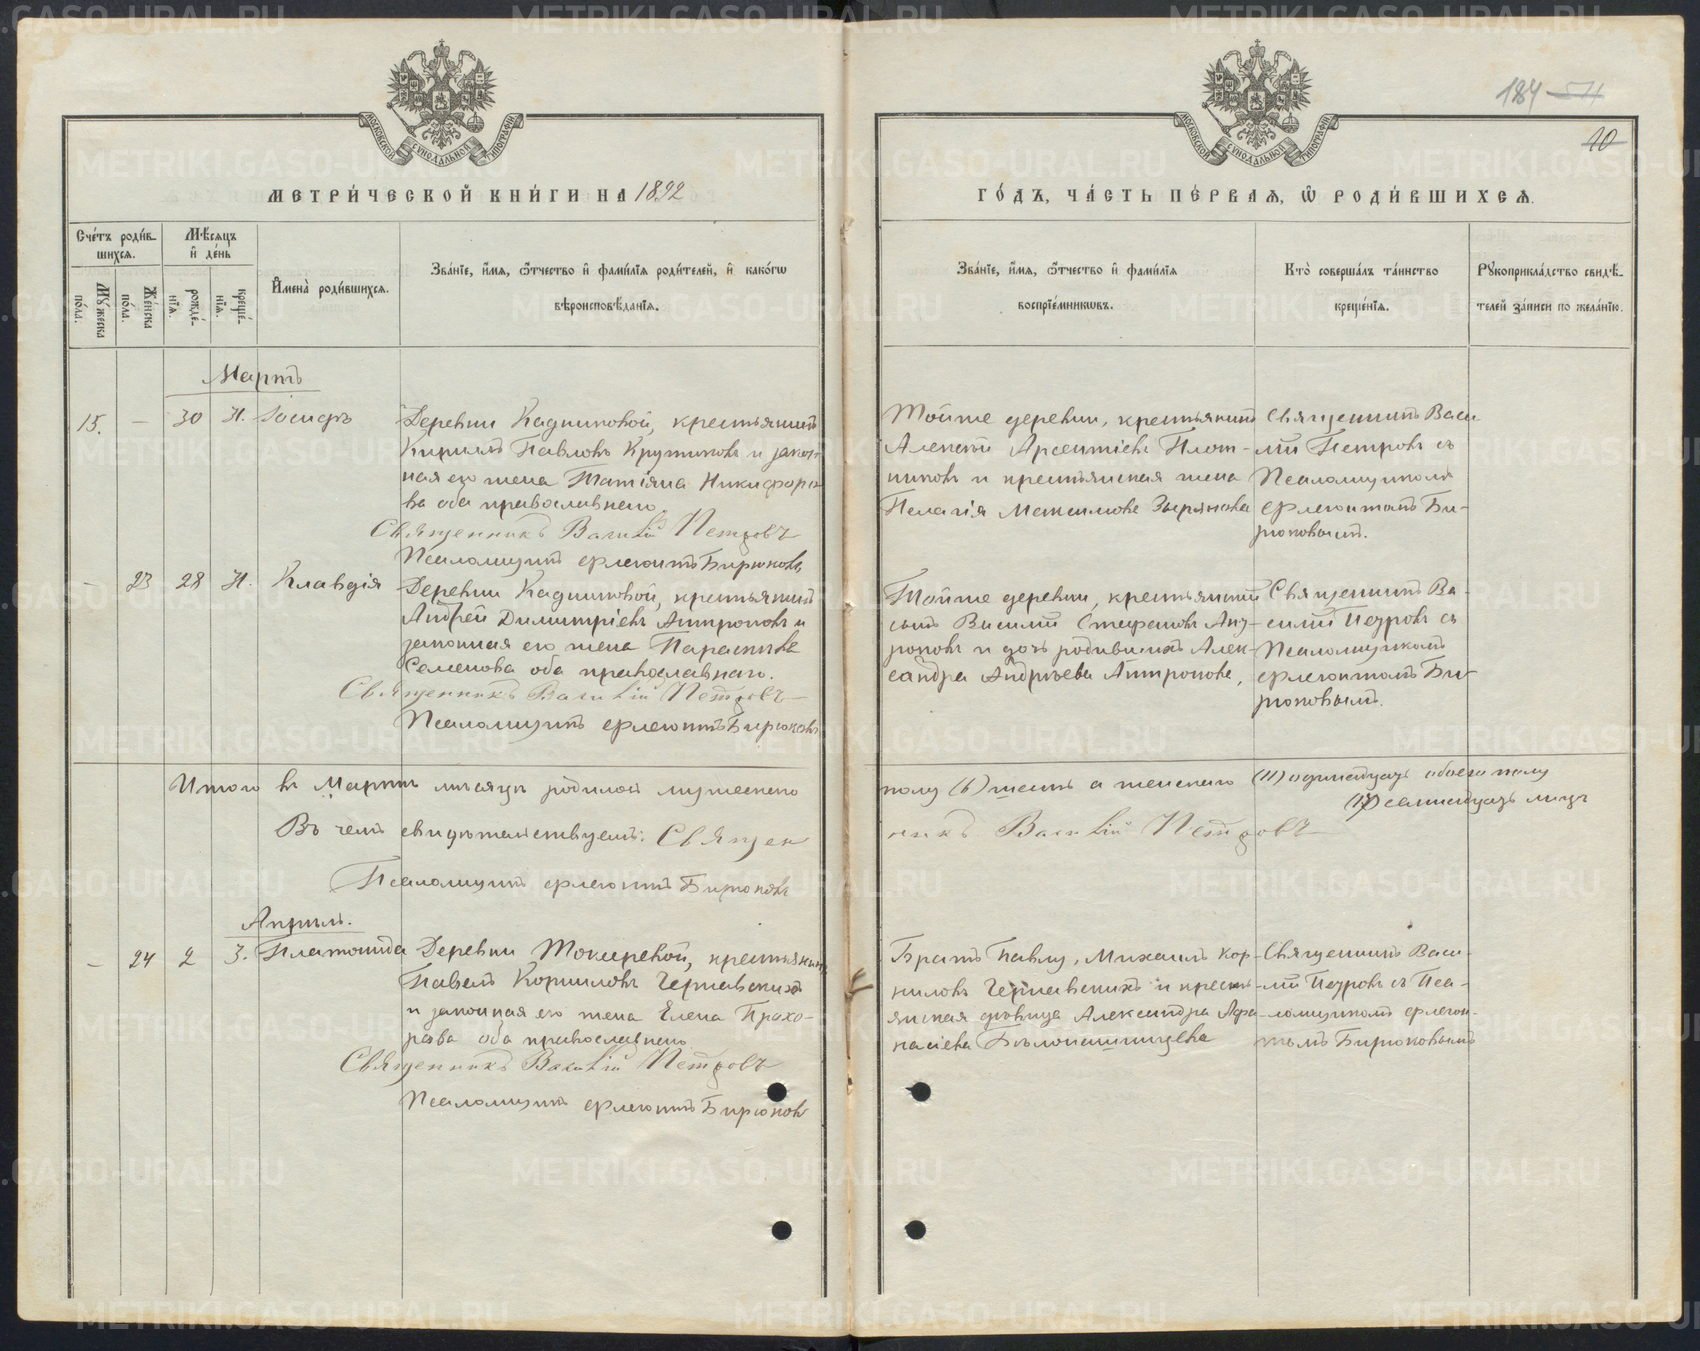 184 54
10
МЕТРИ́ЧЕСКОЙ КНИ́ГИ НА 1892
ГО́ДЪ, ЧА́СТЬ ПЕ́РВАЯ, Ѽ РОДИ́ВШИХСЯ.
МОСКОВСКОЙ СѴНОДАЛЬНОЙ ТИПОГРАФІИ
МОСКОВСКОЙ СѴНОДАЛЬНОЙ ТИПОГРАФІИ
Сче́тъ роди́в-
шихся.
Му́жеска по́ла.
Же́нска по́ла.
Мѣ́сяцъ
и҆ де́нь
рожде́-
нїя.
креще́-
нїя.
И҆мена̀ роди́вшихся.
Зва́нїе, и҆́мя, ѻ҆́тчество и҆ фами́лїя роди́телей, и҆ како́гѡ
вѣроисповѣ́данїя.
Зва́нїе, и҆́мя, ѻ҆́тчество и҆ фами́лїя
воспрїе́мникѡвъ.
Кто̀ соверша́лъ та́инство
креще́нїя.
Рꙋкоприкла́дство свидѣ́-
телей за́писи по жела́нїю.
Мартъ
15. — 30 31. Іосифъ
Деревни Кадниковой, крестьянинъ
Кириллъ Павловъ Крутиковъ и закон
ная его жена Татіана Никифоро
ва оба православнаго
Священникъ Василій Петровъ
Псаломщикъ Флегонтъ Бирюковъ
Тойже деревни, крестьянинъ
Алексѣй Арсентіевъ Плот-
никовъ и крестьянская жена
Пелагія Максимова Зырянова
Священникъ Васи
лій Петровъ съ
Псаломщикомъ
Флегонтомъ Би-
рюковымъ.
— 23 28 31. Клавдія
Деревни Кадниковой, крестьянинъ
Андрей Димитріевъ Антроповъ и
законная его жена Параскева
Семенова оба православнаго.
Священникъ Василій Петровъ
Псаломщикъ Флегонтъ Бирюковъ
Тойже деревни, крестьянскій
сынъ Василій Стефановъ Ант
роповъ и дочь родившихъ Алек-
сандра Андреева Антропова,
Священникъ Ва-
силій Петровъ съ
Псаломщикомъ
Флегонтомъ Би-
рюковымъ.
Итого въ Мартѣ мѣсяцѣ родилось мужескаго
полу (6) шесть а женскаго (11) одиннадцать обоего полу
(17) семнадцать лицъ
Въ чемъ свидѣтельствуемъ: Священ
никъ Василій Петровъ
Псаломщикъ Флегонтъ Бирюковъ
Апрѣль.
— 24 2 3. Платонида
Деревни Токаревой, крестьянинъ
Павелъ Корниловъ Чернавскихъ
и законная его жена Елена Прохо-
рова оба православнаго
Священникъ Василій Петровъ
Псаломщикъ Флегонтъ Бирюковъ
Братъ Павлу, Михаилъ Кор-
ниловъ Чернавскихъ и кресть-
янская дѣвица Александра Афа-
насіева Бѣлоносицева
Священникъ Васи-
лій Петровъ съ Пса-
ломщикомъ Флегон-
томъ Бирюковымъ
METRIKI.GASO-URAL.RU